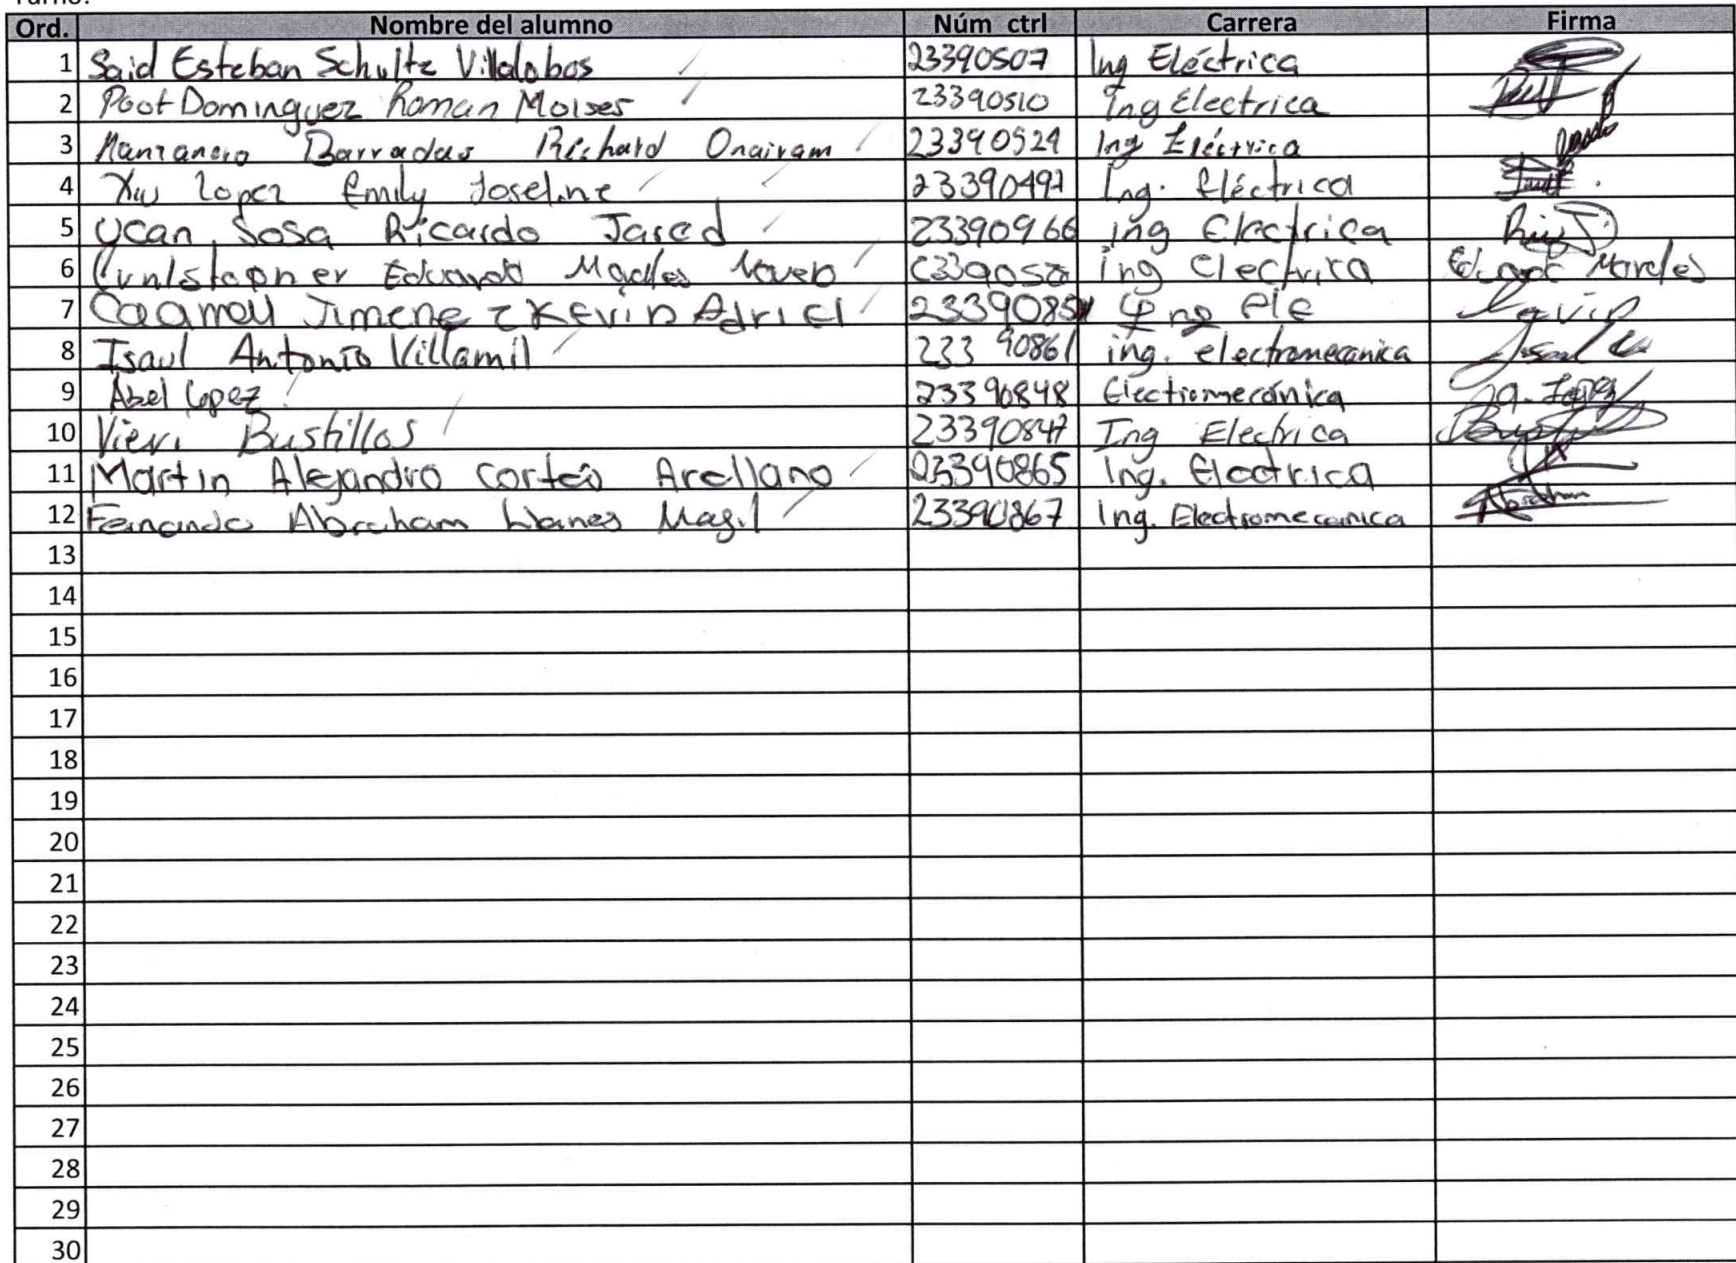 Turno:
Ord. Nombre del alumno Núm ctrl Carrera Firma
1 Said Esteban Schultz Villalobos 23390507 Ing Eléctrica
2 Poot Dominguez Roman Moises 23390510 Ing Electrica
3 Manzanero Barradas Richard Onairam 23390529 Ing Eléctrica
4 Xiu Lopez Emily Joseline 23390497 Ing. Eléctrica
5 Ucan Sosa Ricardo Jared 23390966 ing Electrica
6 Eduardo ing Electrica
7 Caamal Jimenez Kevin Adriel Ing Ele Kevin
8 Isaul Antonio Villamil 23390861 ing. electromecanica
9 Abel Lopez 23390848 Electromecánica
10 Vieri Bustillos 23390847 Ing Electrica
11 Martin Alejandro Cortés Arellano 23390865 Ing. Electrica
12 Fernando Abraham 23390867 Ing. Electromecanica
13
14
15
16
17
18
19
20
21
22
23
24
25
26
27
28
29
30